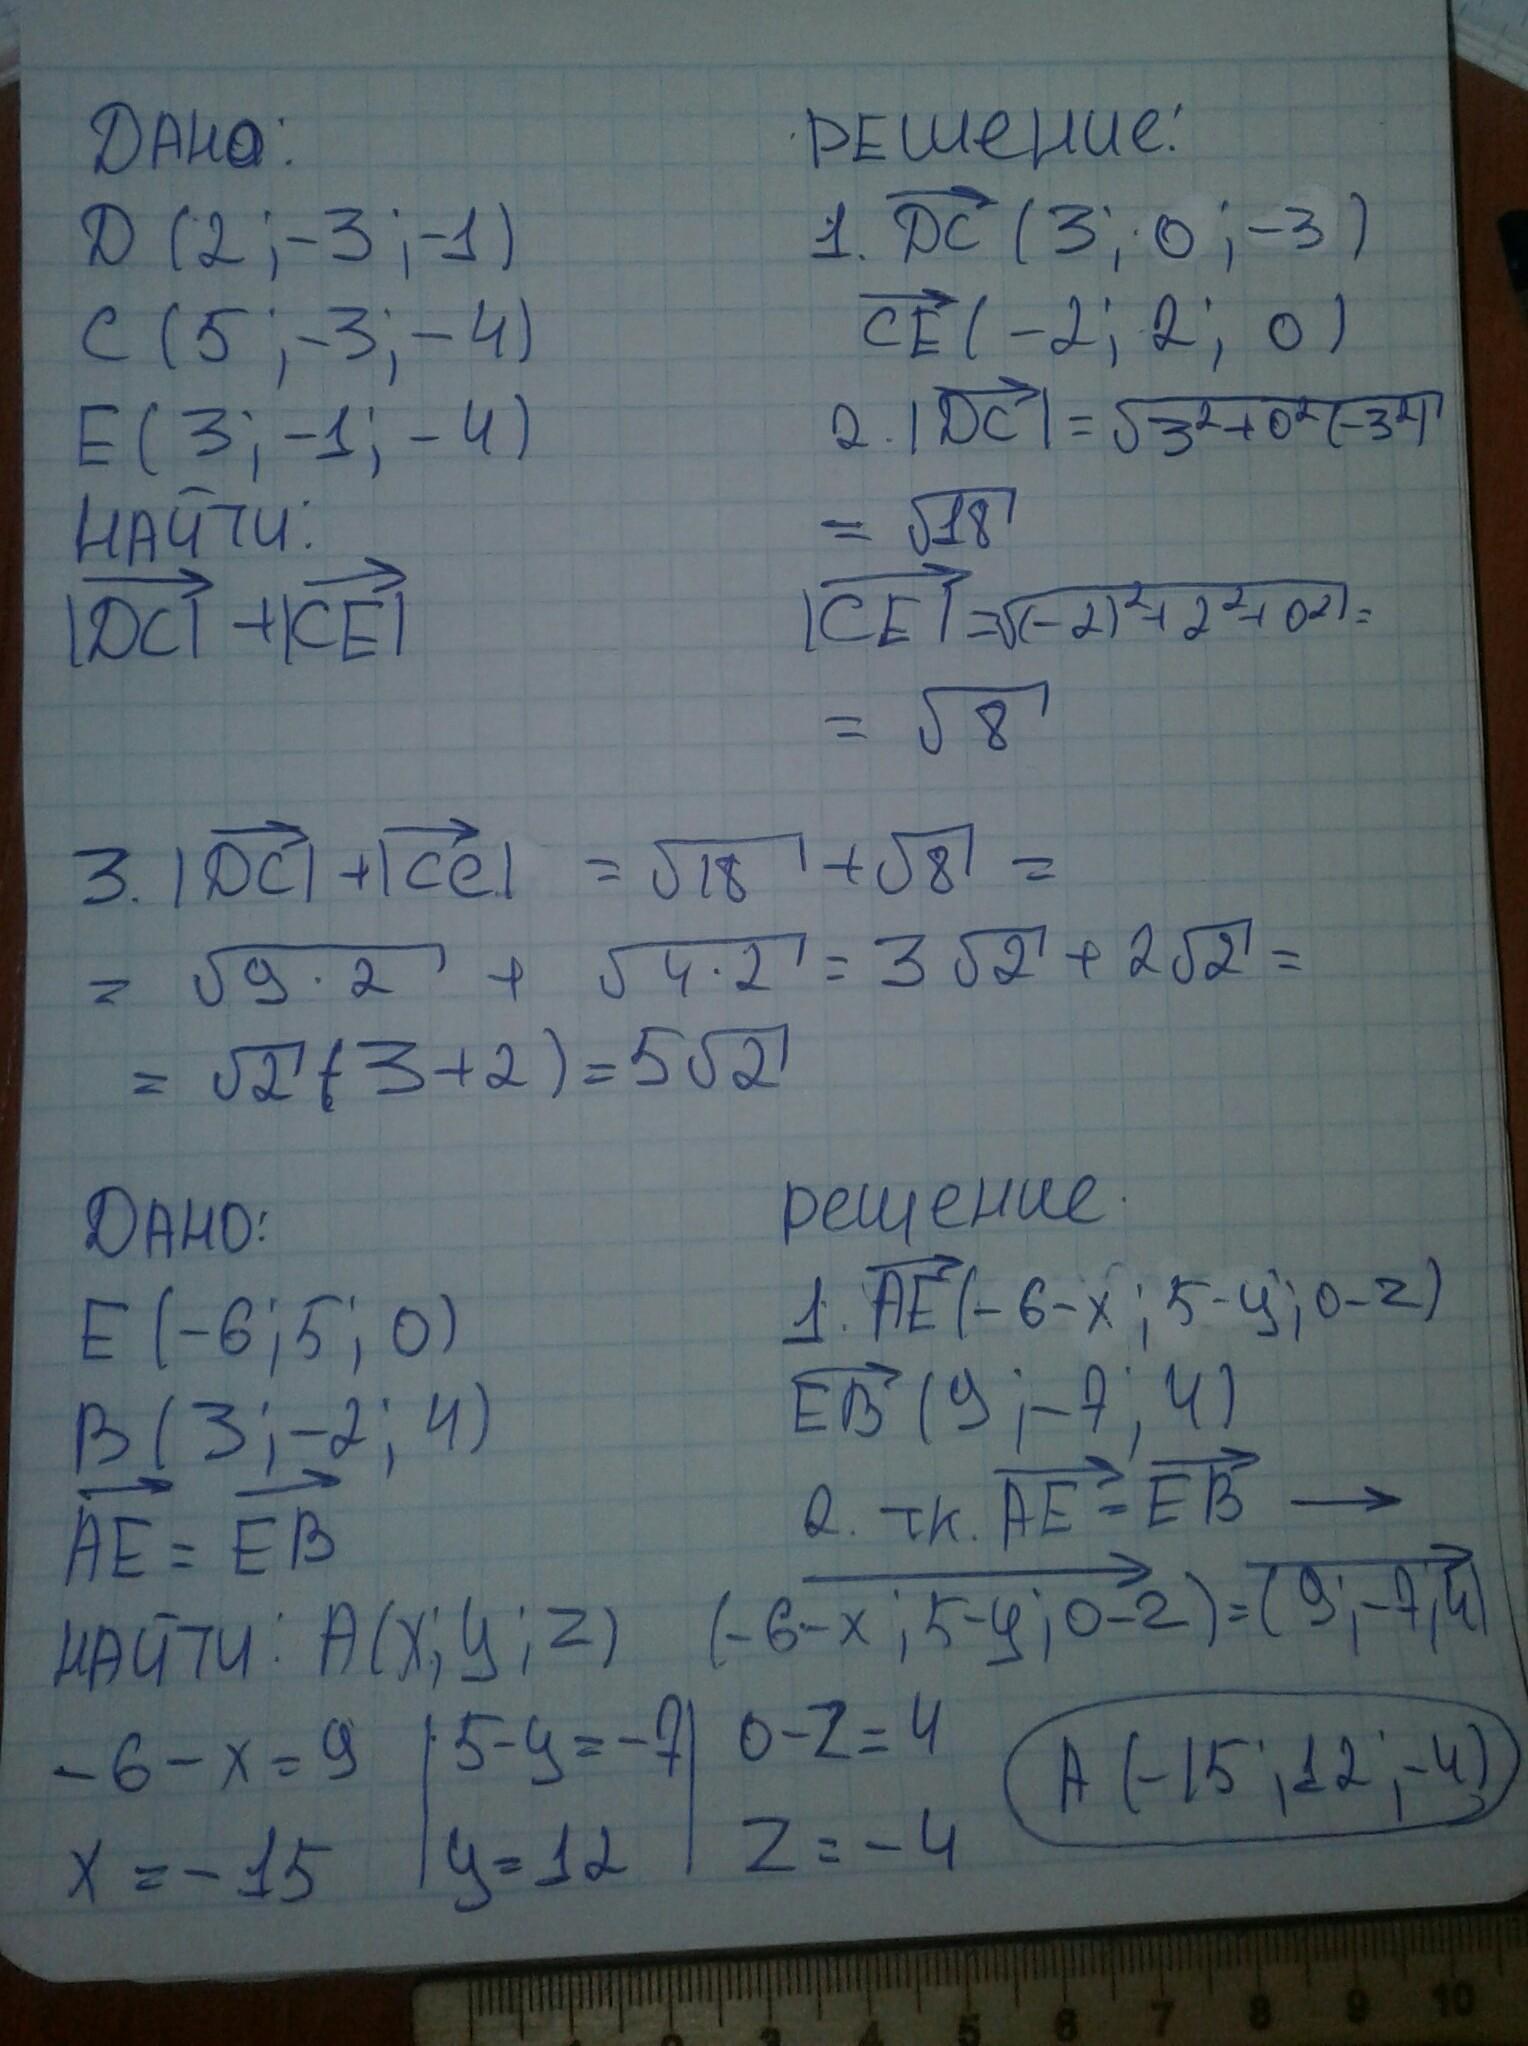 ДАНО:
D (2 ; -3 ; -1)
C (5 ; -3 ; -4)
E (3 ; -1 ; -4)
НАЙТИ:
|DC| + |CE|
РЕШЕНИЕ:
1. DC (3 ; 0 ; -3)
CE (-2 ; 2 ; 0)
2. |DC| = √3²+0²(-3²)
= √18
|CE| = √(-2)²+2²+0² =
= √8
3. |DC| + |CE| = √18 + √8 =
= √9·2 + √4·2 = 3√2 + 2√2 =
= √2 (3+2) = 5√2
ДАНО:
E (-6 ; 5 ; 0)
B (3 ; -2 ; 4)
AE = EB
НАЙТИ: A (x ; y ; z)
РЕШЕНИЕ.
1. AE (-6-x ; 5-y ; 0-z)
EB (9 ; -7 ; 4)
2. т.к. AE = EB →
(-6-x ; 5-y ; 0-z) = (9 ; -7 ; 4)
-6-x=9 | 5-y=-7 | 0-z=4
x=-15 | y=12 | z=-4
A (-15 ; 12 ; -4)
1 2 3 4 5 6 7 8 9 10